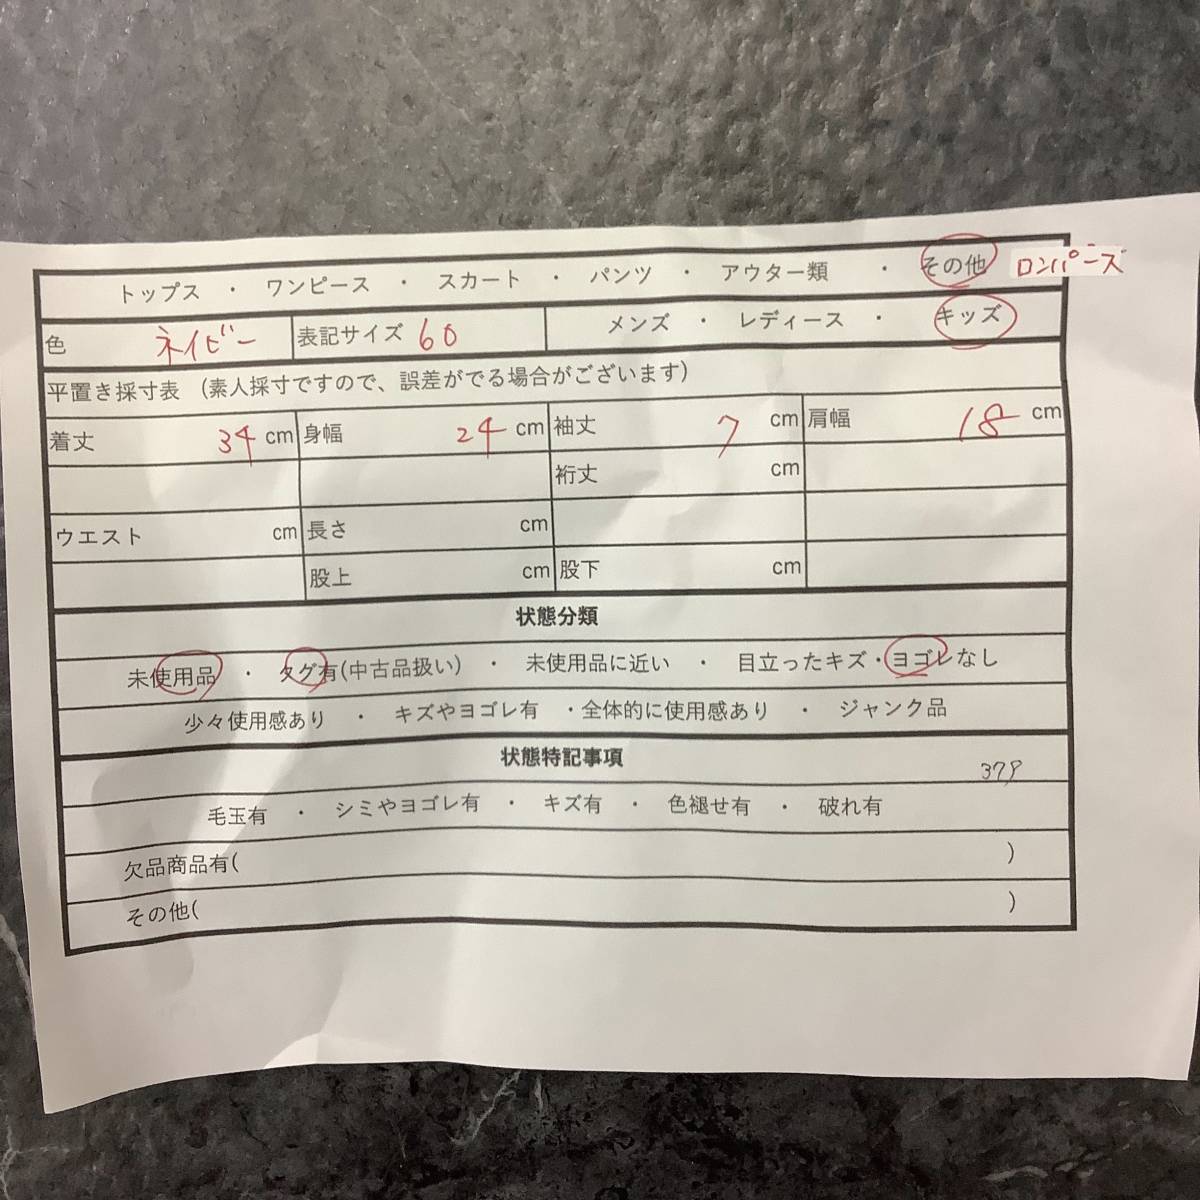 トップス ・ ワンピース ・ スカート ・ パンツ ・ アウター類 ・ その他 ロンパース
色 ネイビー 表記サイズ 60 メンズ ・ レディース ・ キッズ
平置き採寸表 (素人採寸ですので、誤差がでる場合がございます)
着丈 34 cm 身幅 24 cm 袖丈 7 cm 肩幅 18 cm
裄丈 cm
ウエスト cm 長さ cm
股上 cm 股下 cm
状態分類
未使用品 ・ タグ有(中古品扱い) ・ 未使用品に近い ・ 目立ったキズ・ヨゴレなし
少々使用感あり ・ キズやヨゴレ有 ・全体的に使用感あり ・ ジャンク品
状態特記事項 379
毛玉有 ・ シミやヨゴレ有 ・ キズ有 ・ 色褪せ有 ・ 破れ有
欠品商品有( )
その他( )